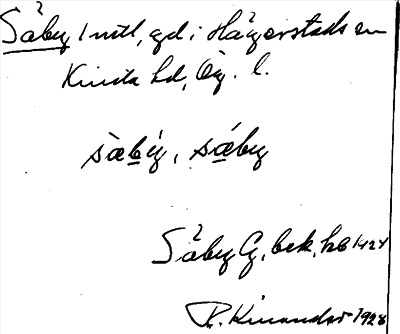 Säby 1 mtl, gd i Hägerstads sn
Kinda hd, Ög. l.
sàbý, sáby
Säby G, bek, hb 1424
R. Kinander 1928